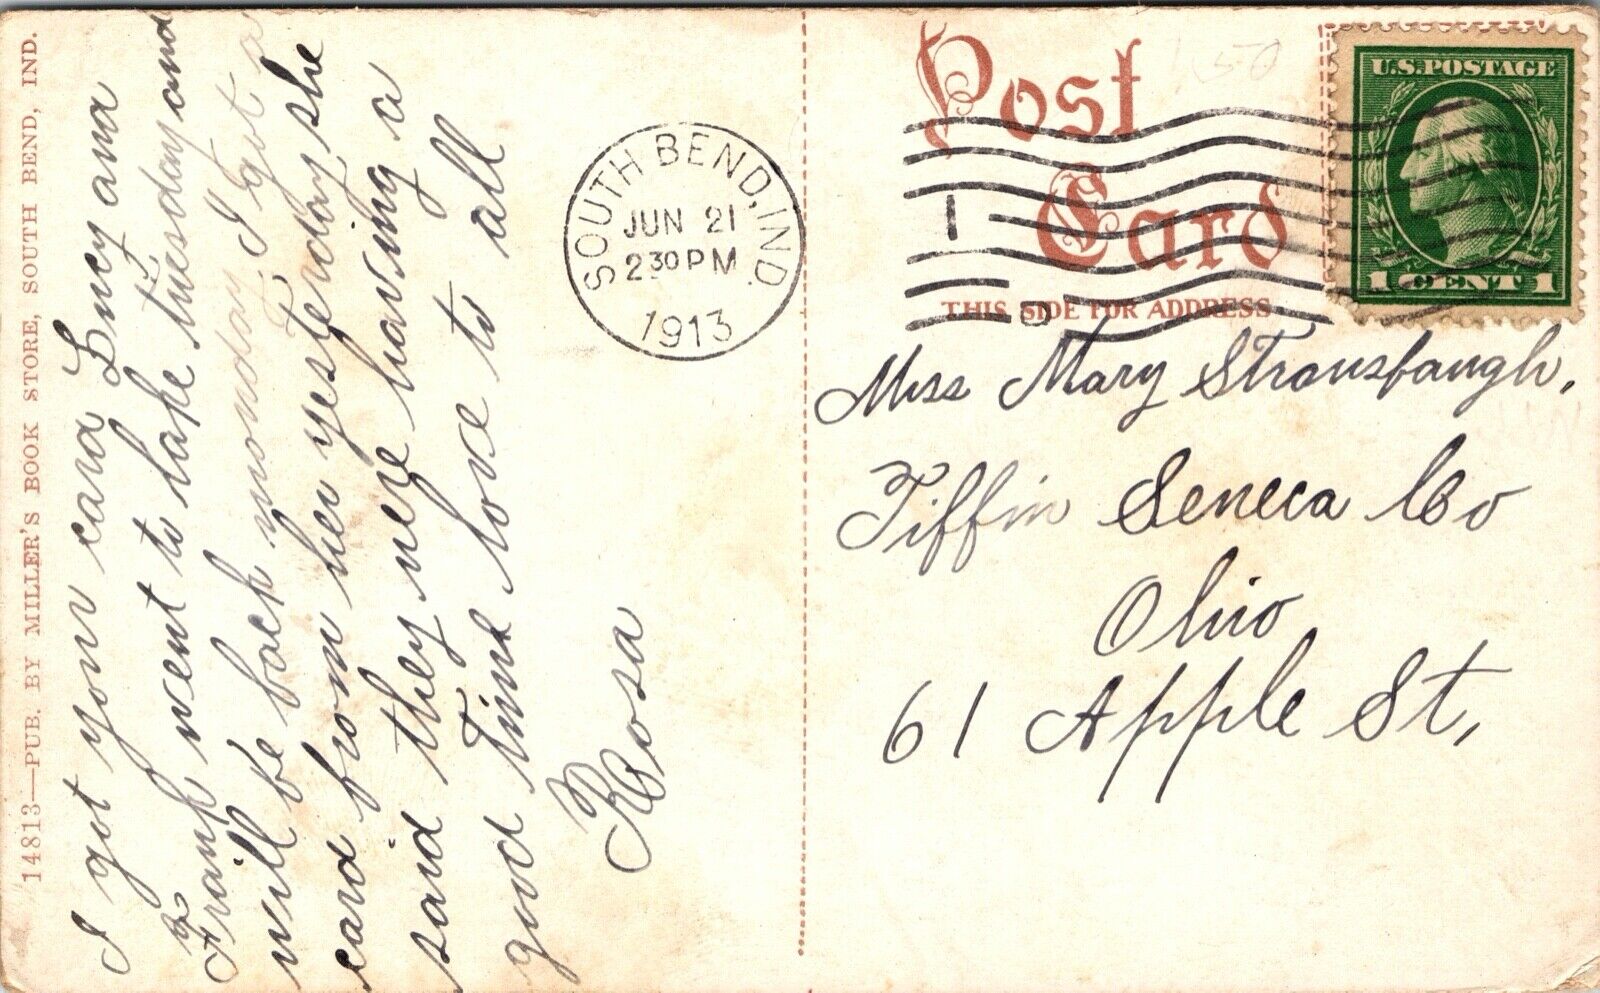 14813—PUB. BY MILLER'S BOOK STORE, SOUTH BEND, IND.
I got your card Lucy and
Frank went to lake tuesday and
will be back monday. I got a
card from her yesterday she
said they were having a
good time love to all
Rosa
SOUTH BEND, IND.
JUN 21
2 30 PM
1913
Post
Card
THIS SIDE FOR ADDRESS
150
1
U.S. POSTAGE
1 CENT 1
Miss Mary Strausbaugh,
Tiffin Seneca Co
Ohio
61 Apple St,